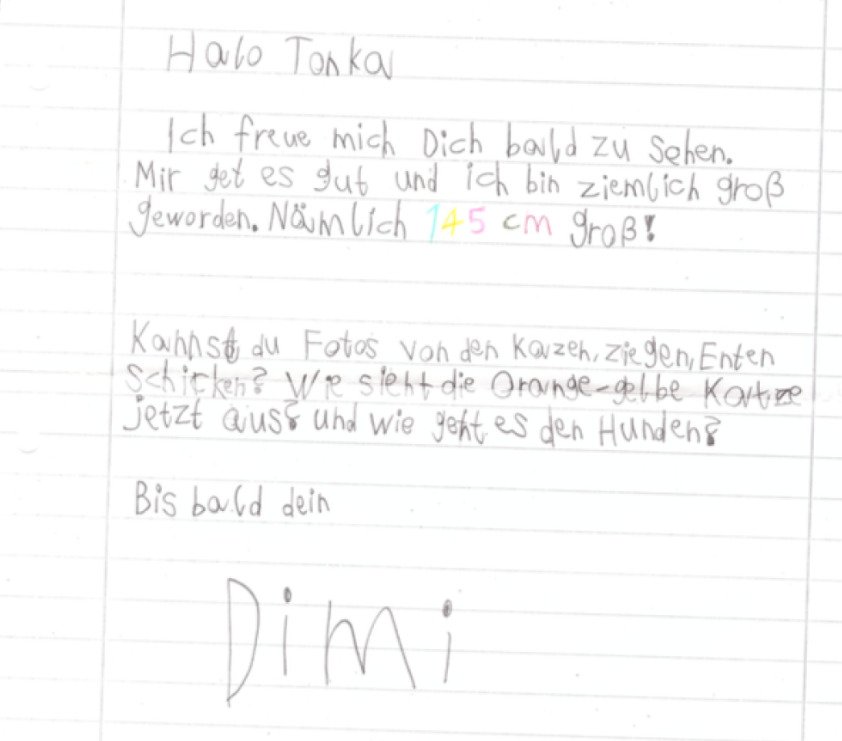 Halo Tonka
Ich freue mich Dich bald zu sehen.
Mir get es gut und ich bin ziemlich groß
geworden. Nämlich 145 cm groß!
Kannst du Fotos von den Kazen, ziegen, Enten
Schicken? Wie sieht die Orange-gelbe Katze
jetzt aus? und wie geht es den Hunden?
Bis bald dein
Dimi